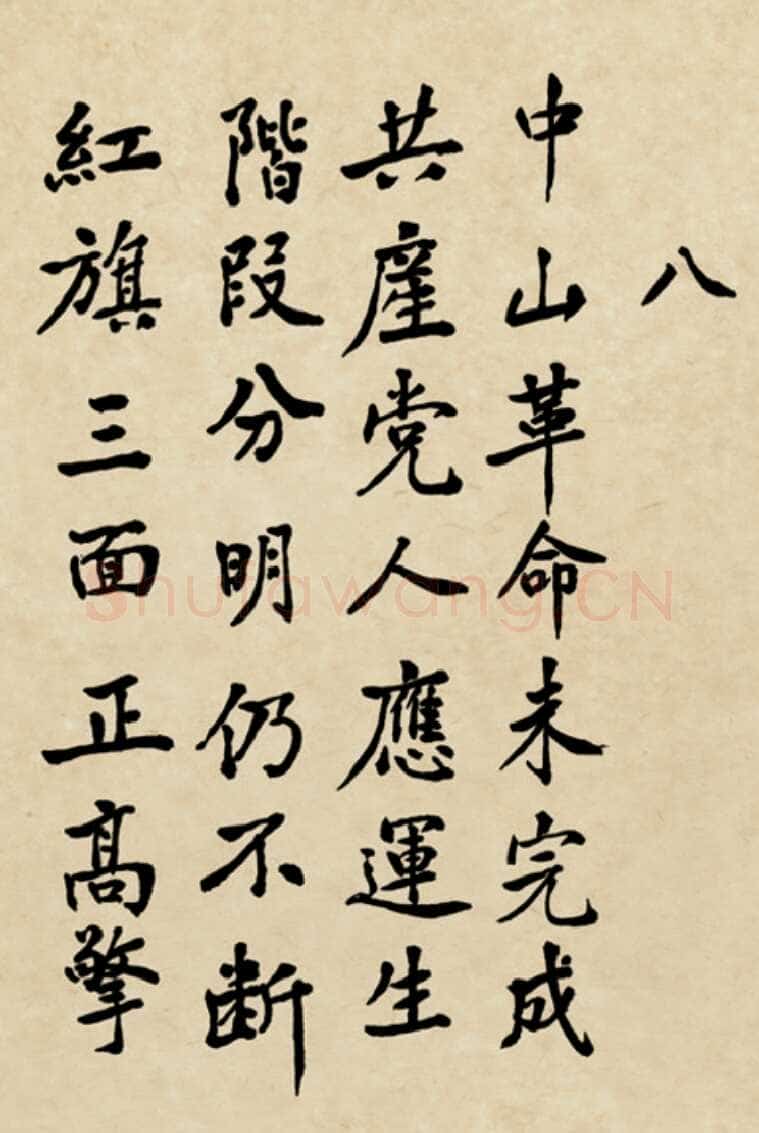 八
中山革命未完成
共産党人應運生
階段分明仍不断
紅旗三面正髙擎
Shufawang.CN